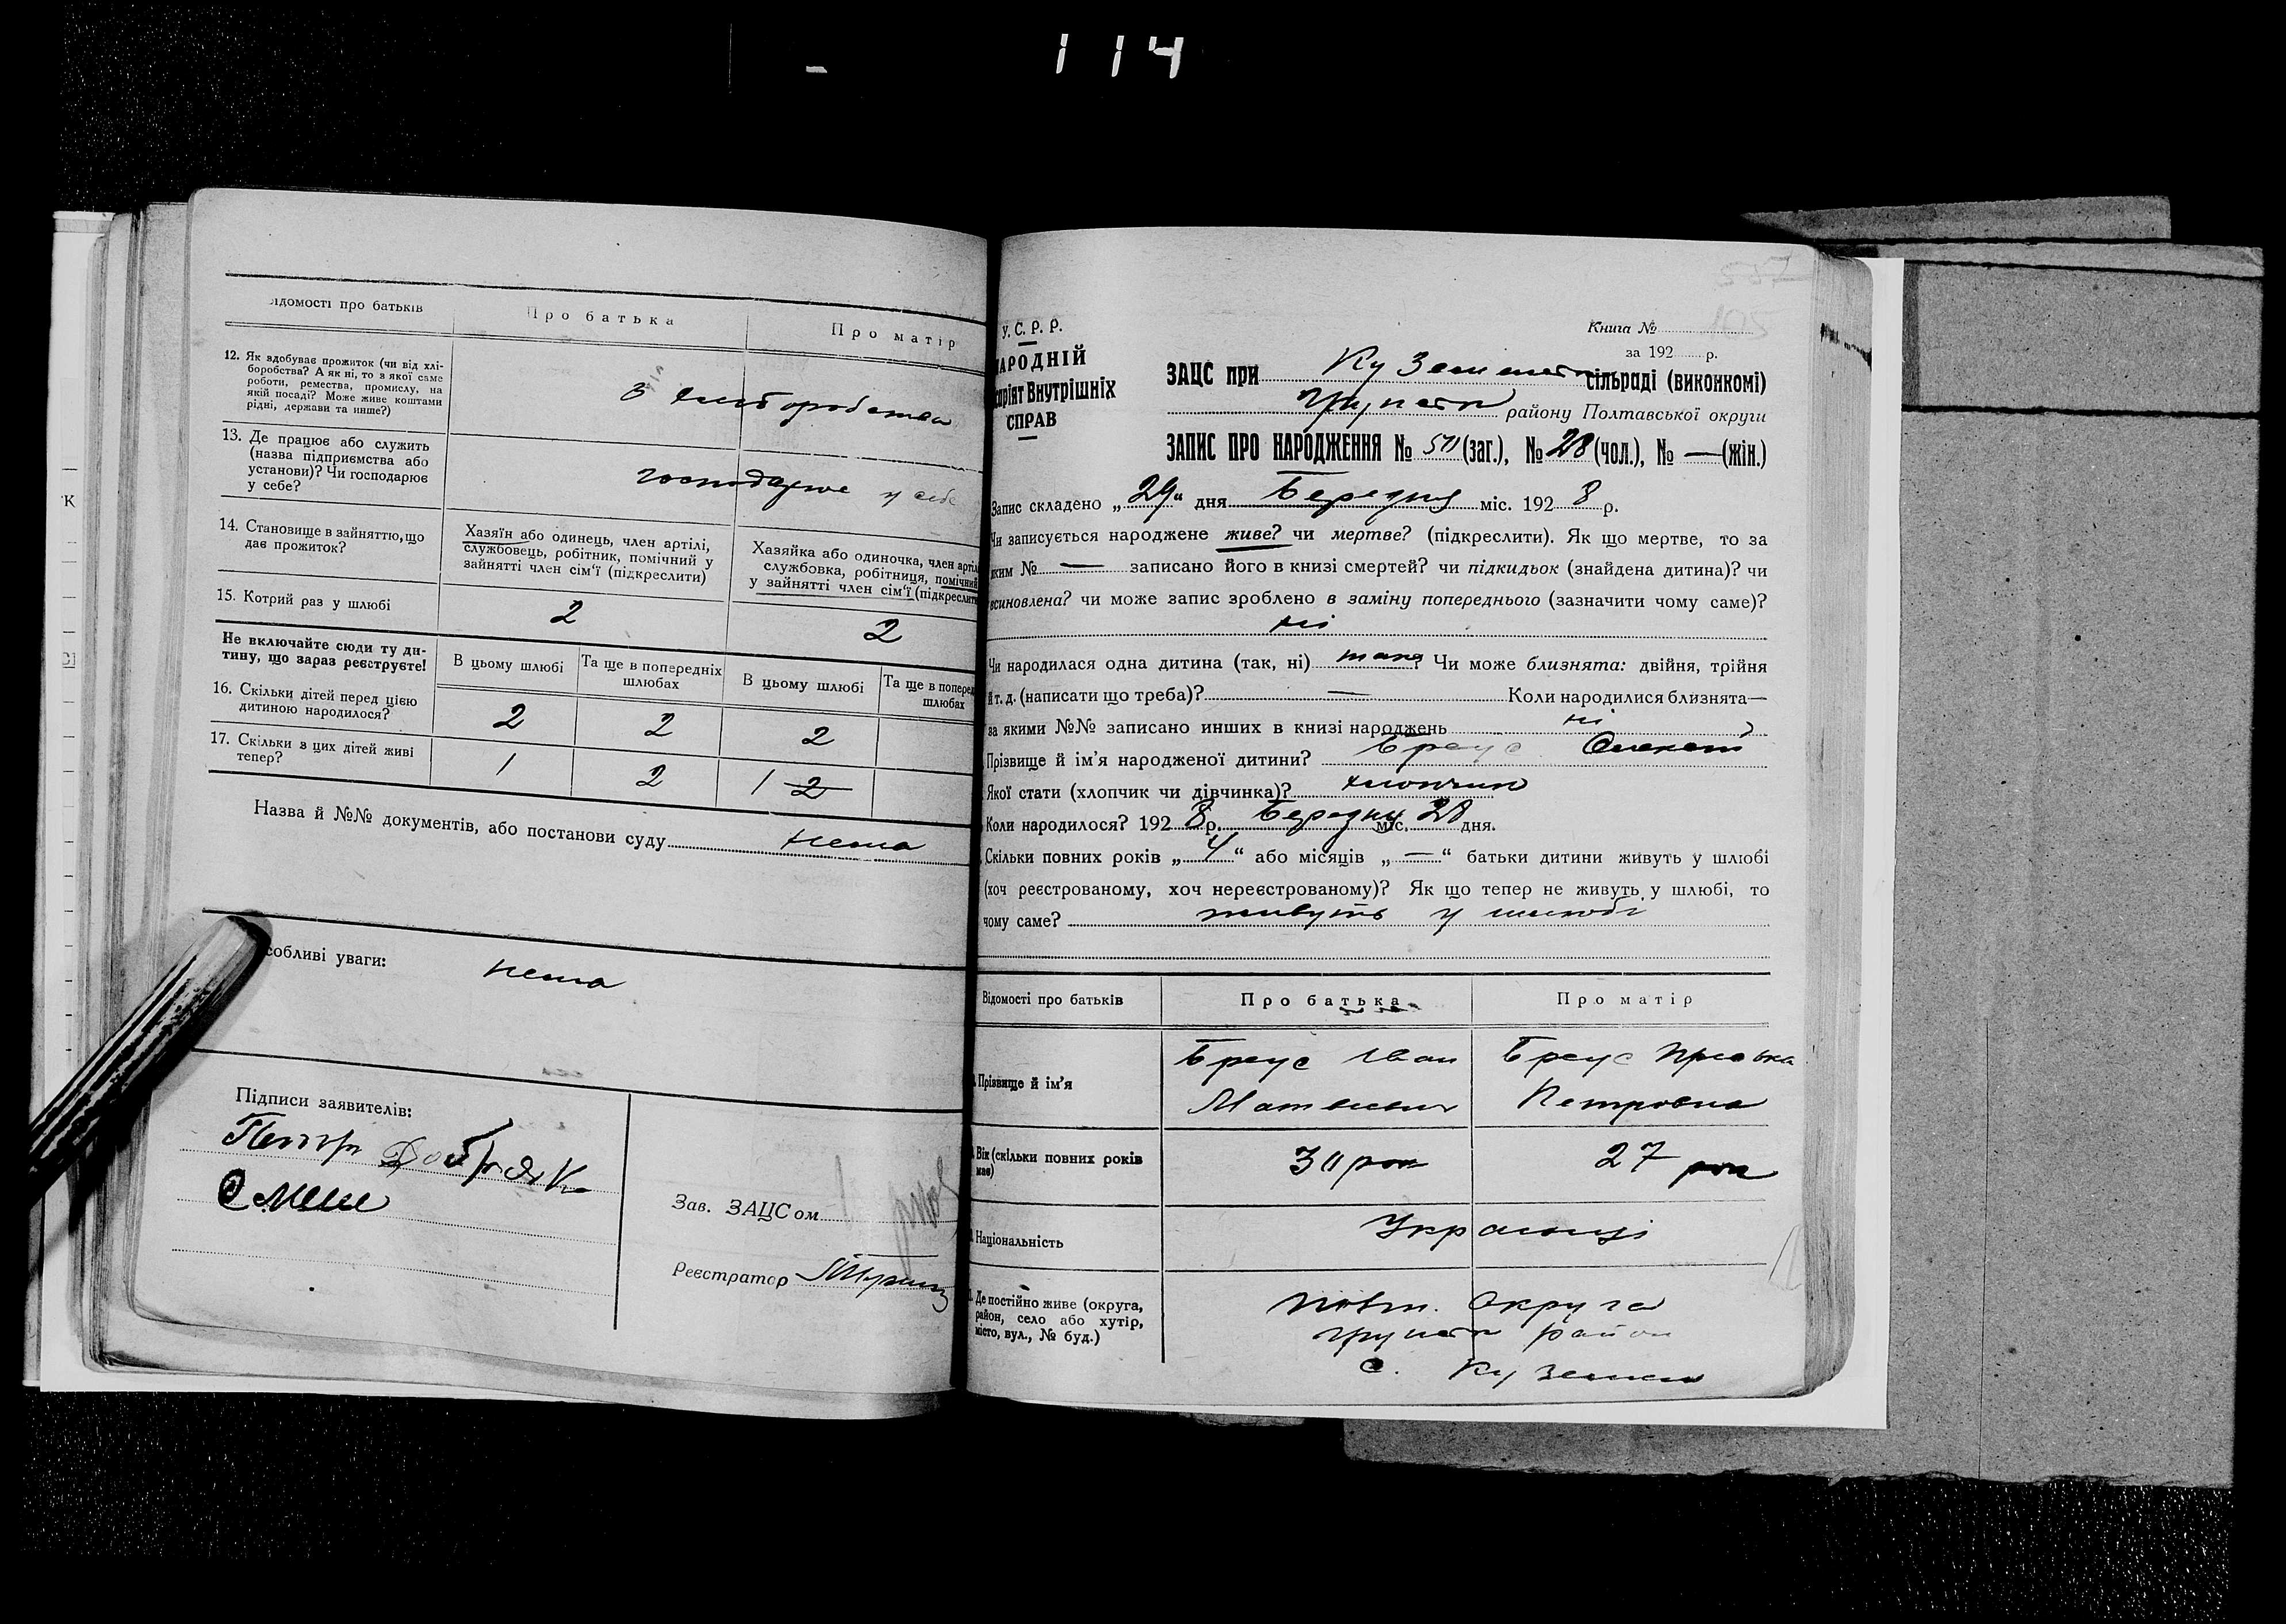 114
Відомості про батьків
Про батька
Про матір
12. Як здобуває прожиток (чи від хлі-
боробства? А як ні, то з якої саме
роботи, ремества, промислу, на
якій посаді? Може живе коштами
рідні, держави та инше?)
з хліборобства
13. Де працює або служить
(назва підприємства або
установи)? Чи господарює
у себе?
господарює у себе
14. Становище в зайняттю, що
дає прожиток?
Хазяїн або одинець, член артілі,
службовець, робітник, помічний у
зайнятті член сім'ї (підкреслити)
Хазяйка або одиночка, член артіл
службовка, робітниця, помічний
у зайнятті член сім'ї (підкреслити
15. Котрий раз у шлюбі
2
2
Не включайте сюди ту ди-
тину, що зараз реєструєте!
В цьому шлюбі
Та ще в попередніх
шлюбах
В цьому шлюбі
Та ще в поперед
шлюбах
16. Скільки дітей перед цією
дитиною народилося?
2
2
2
17. Скільки з цих дітей живі
тепер?
1
2
1 2
Назва й №№ документів, або постанови суду нема
собливі уваги: нема
Підписи заявителів:
Петр Добряк
Зав. ЗАЦСом
Реєстратор
У. С. Р. Р.
АРОДНІЙ
саріят Внутрішніх
СПРАВ
Книга №
за 192 р.
ЗАЦС при Куземинск сільраді (виконкомі)
Грунськ району Полтавської округи
ЗАПИС ПРО НАРОДЖЕННЯ № (заг.), № 28 (чол.), № — (жін.)
Запис складено „29“ дня Березня міс. 1928 р.
Чи записується народжене живе? чи мертве? (підкреслити). Як що мертве, то за
яким № — записано його в книзі смертей? чи підкидьок (знайдена дитина)? чи
всиновлена? чи може запис зроблено в заміну попереднього (зазначити чому саме)?
ні
Чи народилася одна дитина (так, ні) така? Чи може близнята: двійня, трійня
й т. д. (написати що треба)? — Коли народилися близнята—
за якими №№ записано инших в книзі народжень ні
Прізвище й ім'я народженої дитини? Бреус Олексій
Якої стати (хлопчик чи дівчинка)? хлопчик
Коли народилося? 1928 р. Березня міс. 28 дня.
Скільки повних років „4“ або місяців „—“ батьки дитини живуть у шлюбі
(хоч реєстрованому, хоч нереєстрованому)? Як що тепер не живуть у шлюбі, то
чому саме? живуть у шлюбі
Відомості про батьків
Про батька
Про матір
Прізвище й ім'я
Бреус Іван
Матвієвич
Бреус Приська
Петровна
Вік (скільки повних років
має)
30 рок
27 рок
Національність
Українці
Де постійно живе (округа,
район, село або хутір,
місто, вул., № буд.)
Полт. округа
Грунськ район
с. Куземен